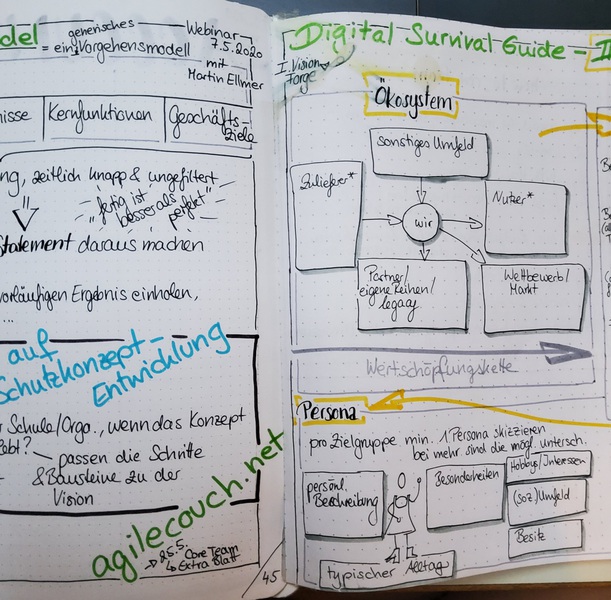 del
generisches
= ein Vorgehensmodell
Webinar
7.5.2020
mit
Martin Ellmer
nisse
Kernfunktionen
Geschäfts-
Ziele
ng, zeitlich knapp & ungefiltert
"fertig ist
besser als
perfekt"
Statement daraus machen
vorläufigen Ergebnis einholen,
...
auf
Schutzkonzept-
Entwicklung
r Schule/Orga., wenn das Konzept
passen die Schritte
& Bausteine zu der
Vision
agilecouch.net
→ 25.5.
Core Team
↳ Extra Blatt
45
Digital Survival Guide -
I. Vision
Forge
Ökosystem
sonstiges Umfeld
Zulieferer*
wir
Nutzer*
Partner/
eigene Reihen/
legacy
Wettbewerb/
Markt
Wertschöpfungskette
Persona
pro Zielgruppe min. 1 Persona skizzieren
bei mehr sind die mögl. untersch.
persönl.
Beschreibung
Besonderheiten
Hobbys/Interessen
(soz) Umfeld
Besitz
typischer Alltag